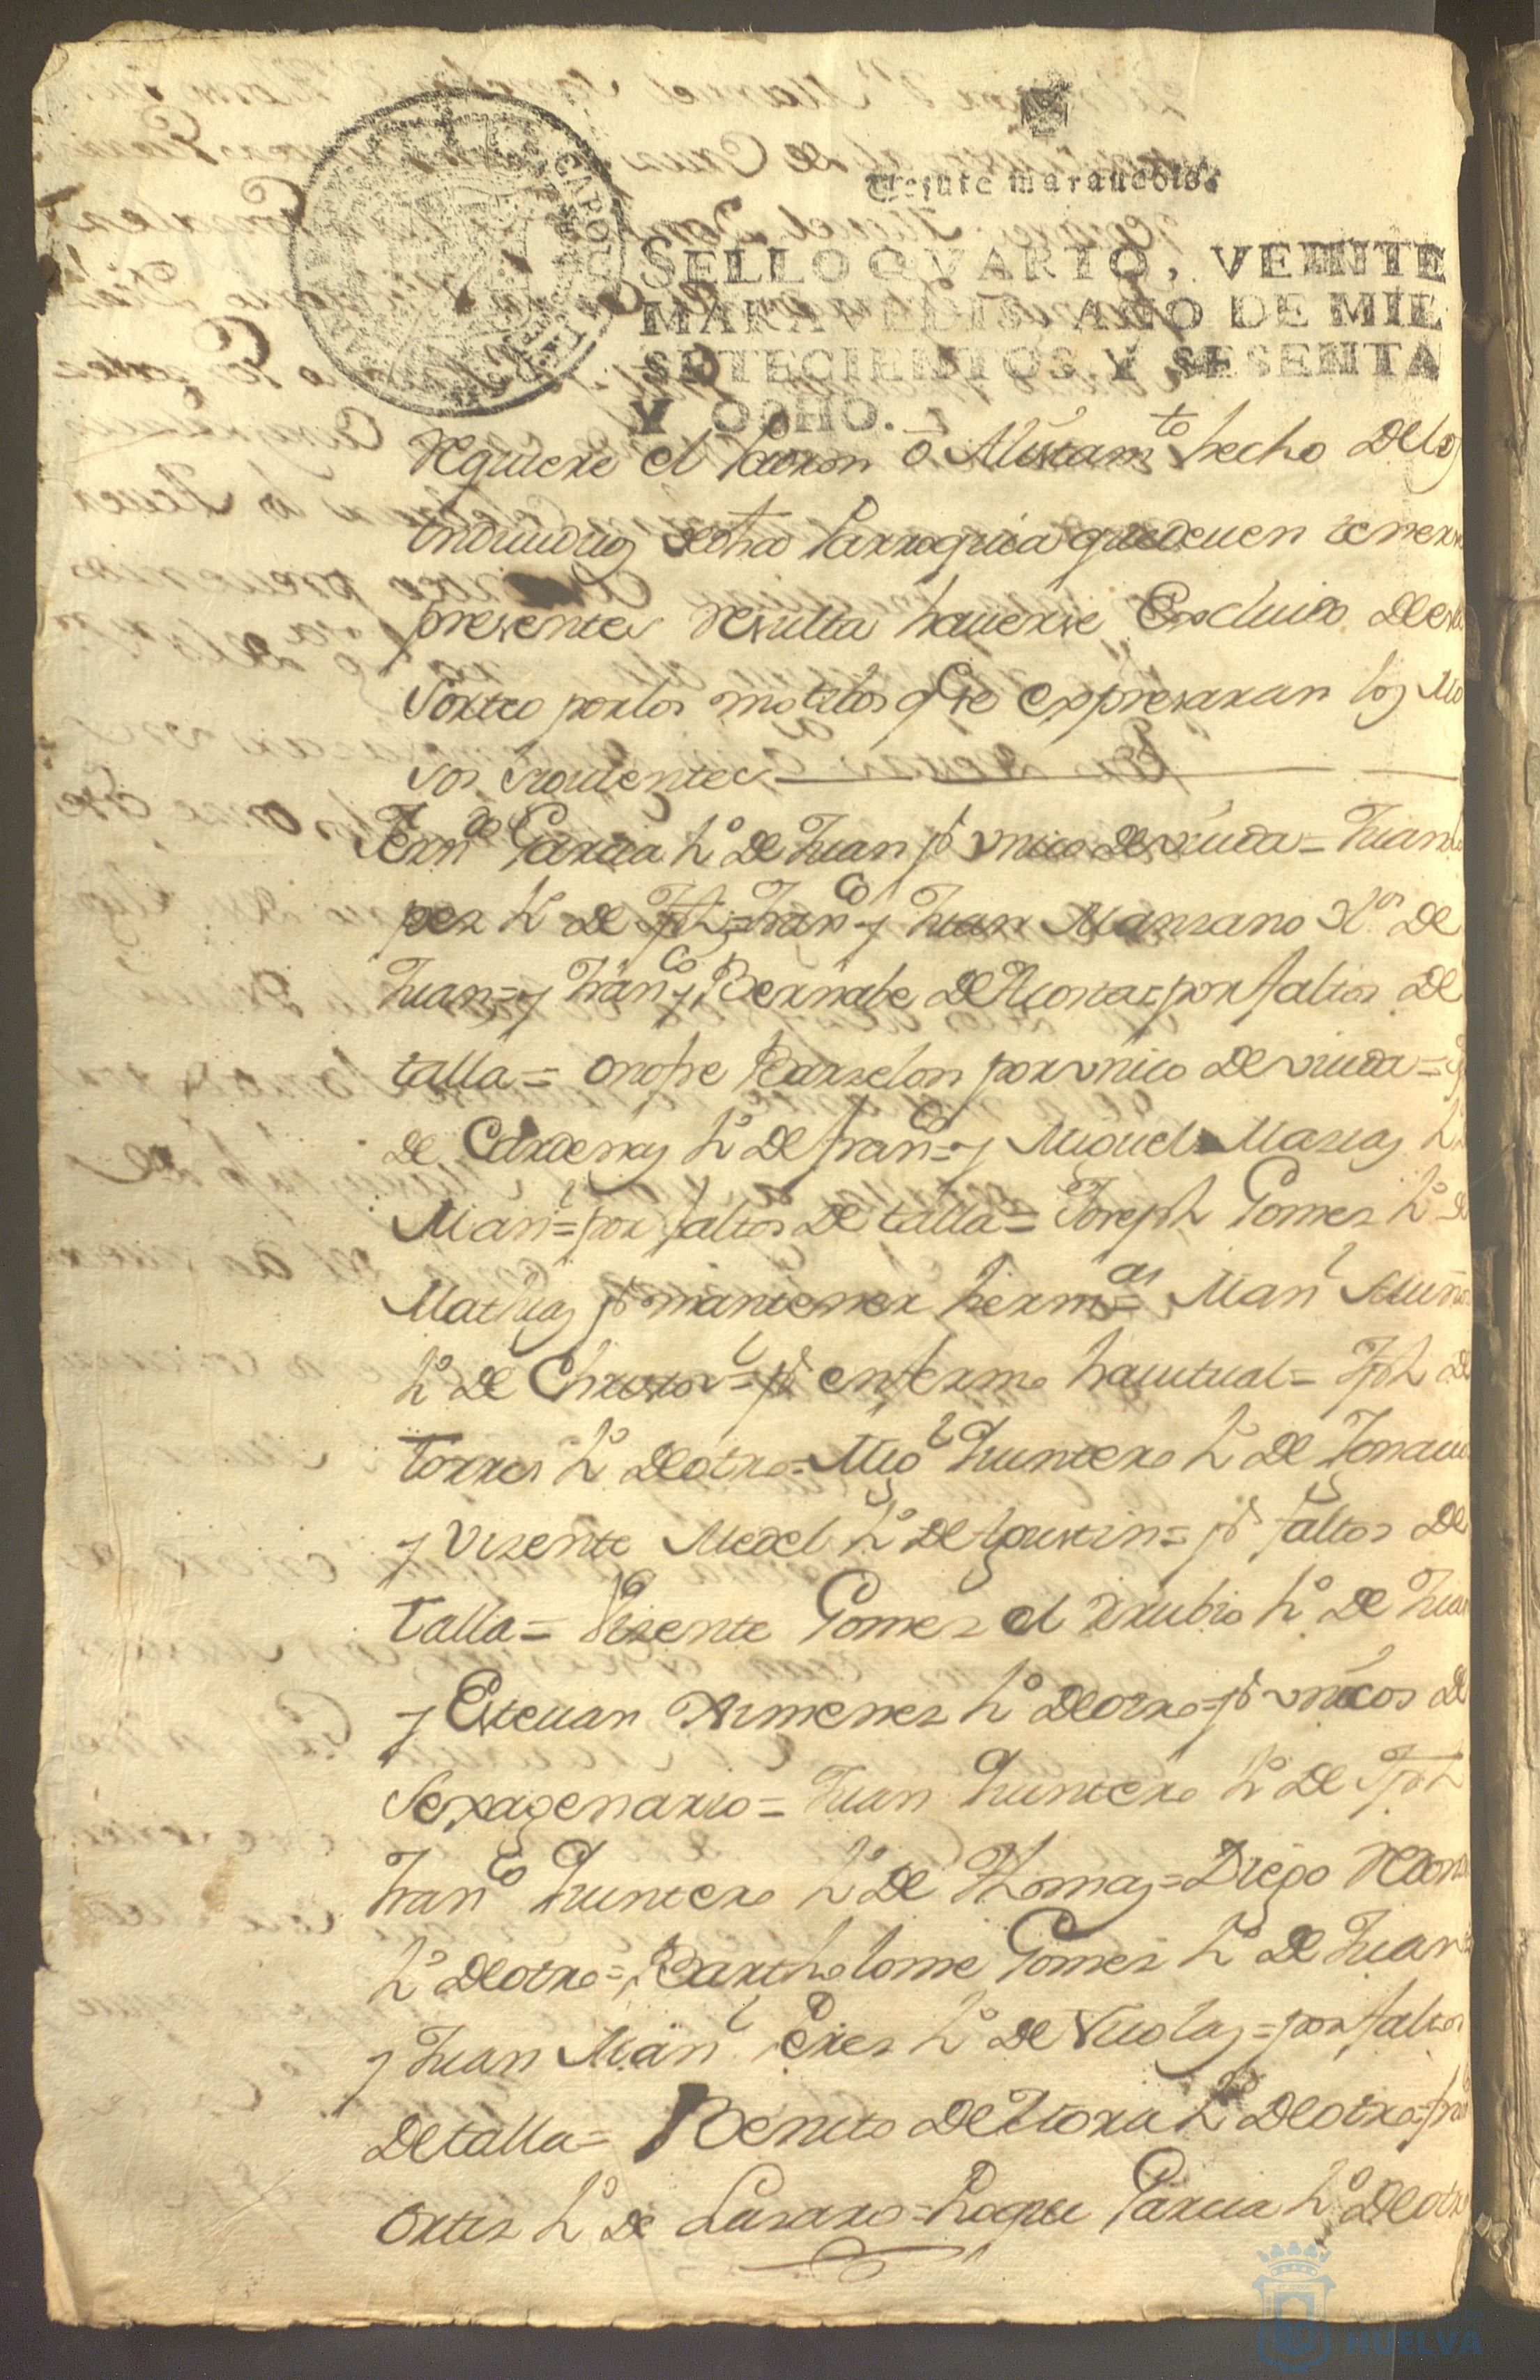 Veinte maravedis.
SELLO QVARTO, VEINTE
MARAVEDIS, AÑO DE MIL
SETECIENTOS Y SESENTA
Y OCHO.
requiere el Padron ô Alistam.to hecho delos
Yndiuiduos dedha Parroquia quedeuen tenerse
presentes resulta hauerse Excluido deeste
Sorteo porlos motibos qe se expresaran los Mo
sos siguientes
Fern.do Garcia h.o de Juan pr vnico de viuda = Juan Lo
pez h.o de Jph = Fran.co y Juan Manzano h.os de
Juan = y Fran.co Bernabe de = por faltos de
talla = Onofre Barzelon por vnico de viuda =
de Cardenas h.o de fran.co = y Miguel Masias h.o
Man.l = por faltos de talla = Joseph Gomez h.o de
Mathias pr mantener herm.as = Man.l Muño
h.o de Christov.l = pr enfermo hauitual = Jph de
Torres h.o deotro = Mig.l Quintero h.o de Ygnacio
y Vizente Medel h.o de Agustin = pr faltos de
talla = Vizente Gomez el Rrubio h.o de Juan
y Esteuan Ximenez h.o deotro = pr vnicos de
Sexagenario = Juan Quintero h.o de Jph
Fran.co Quintero h.o de Thomas = Diego Redon
h.o deotro = Bartholome Gomez h.o de Juan
y Juan Man.l Perez h.o de Nicolas = por faltos
detalla = Benito de Mora h.o deotro =
Ortiz h.o de Lazaro = Roque Garcia h.o deotro
HUELVA